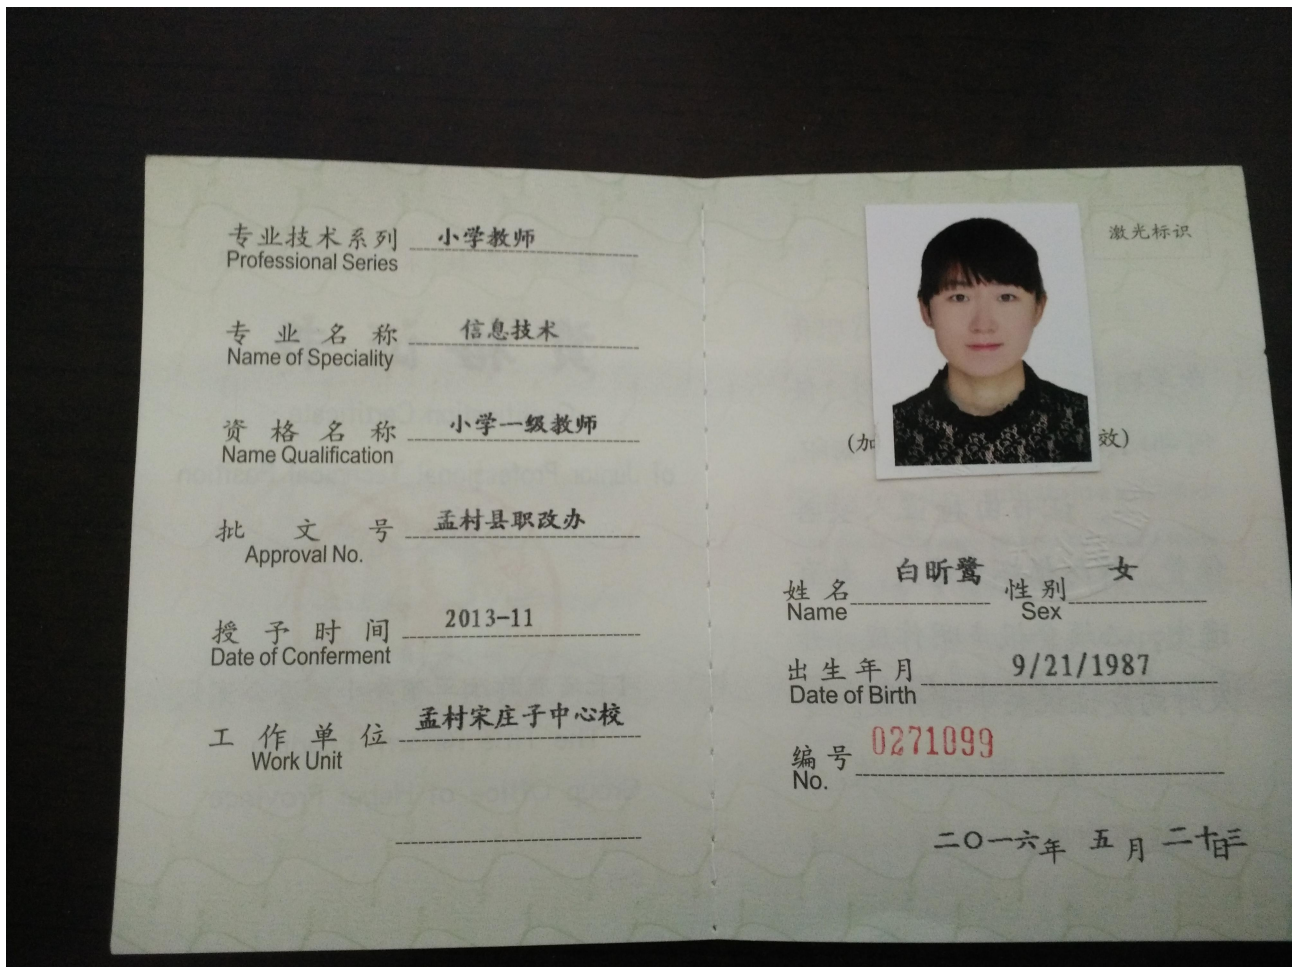 专业技术系列 小学教师
Professional Series
专业名称 信息技术
Name of Speciality
资格名称 小学一级教师
Name Qualification
批文号 孟村县职改办
Approval No.
授予时间 2013-11
Date of Conferment
工作单位 孟村宋庄子中心校
Work Unit
激光标识
(加 效)
姓名 白昕鹭 性别 女
Name Sex
出生年月 9/21/1987
Date of Birth
编号 0271099
No.
二〇一六年 五月 二十三日